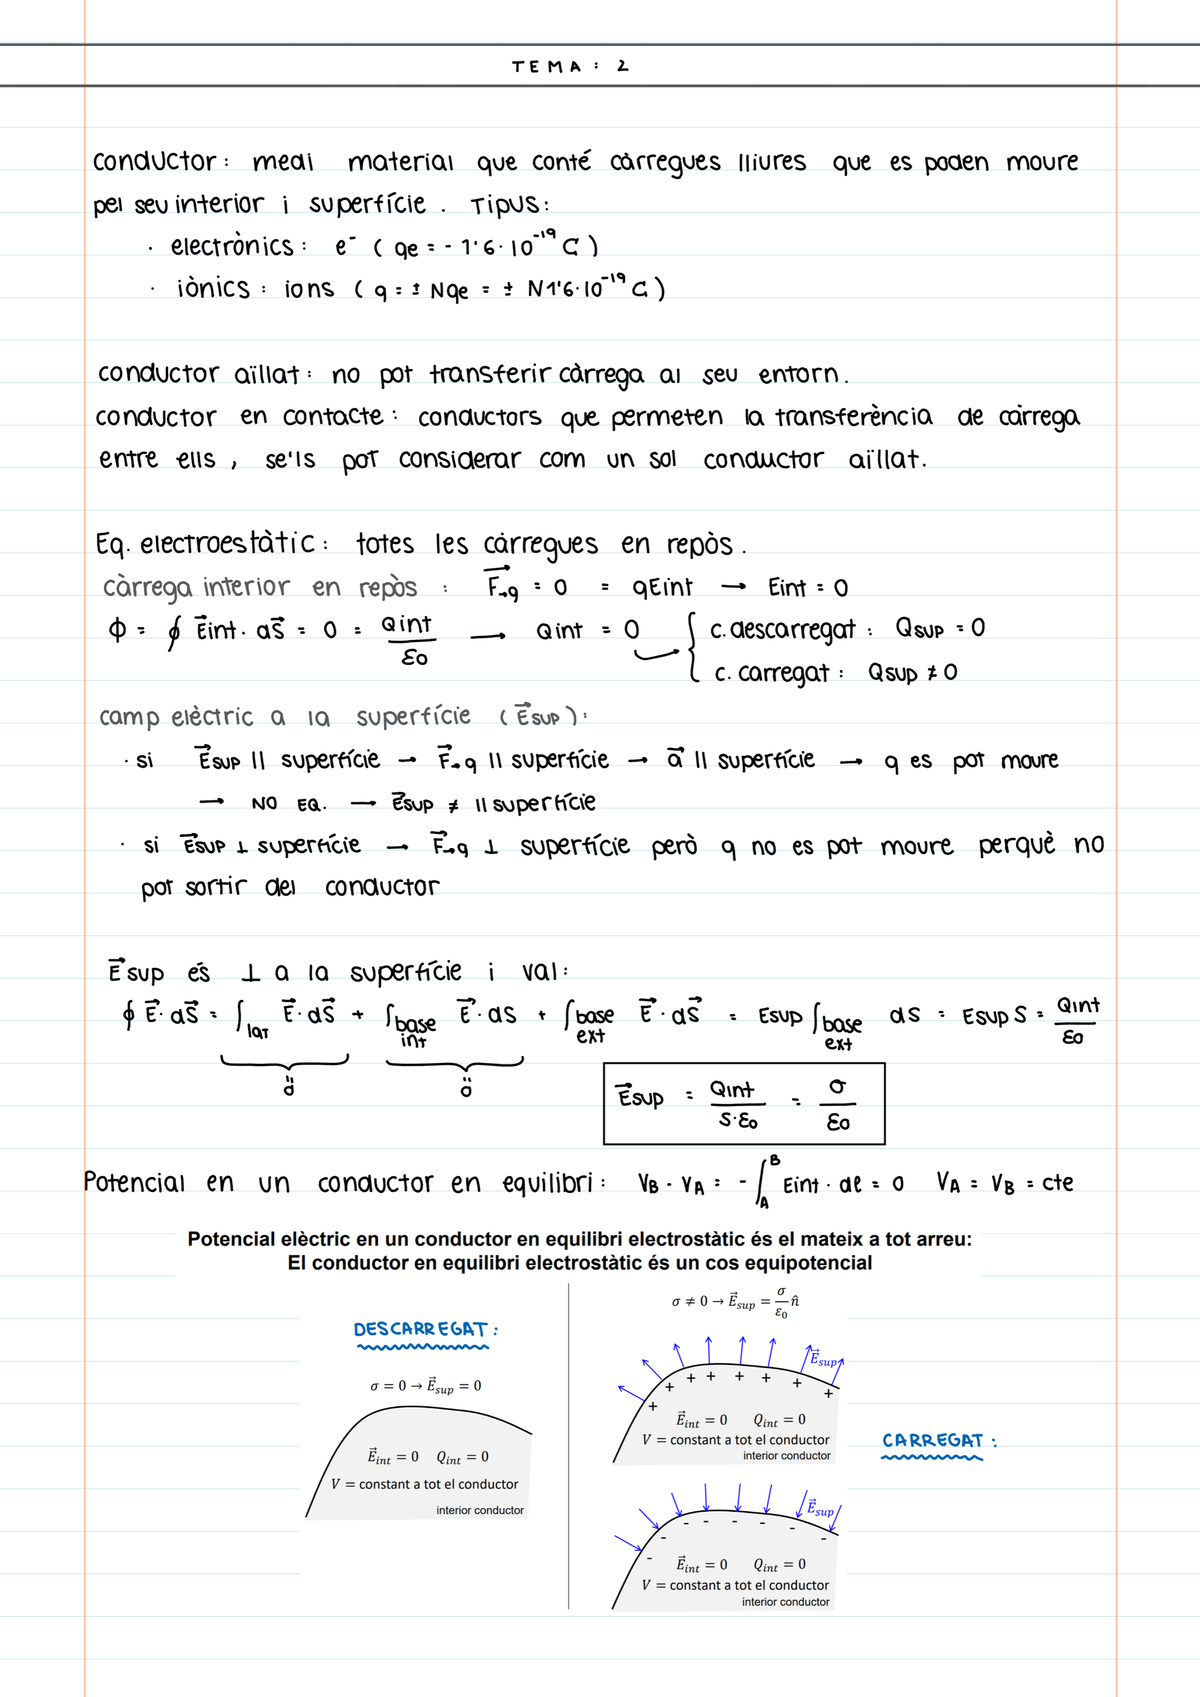 TEMA: 2
conductor: medi material que conté càrregues lliures que es poden moure
pel seu interior i superfície. Tipus:
· electrònics: e⁻ (qe = -1'6·10⁻¹⁹ C)
· iònics: ions (q = ± Nqe = ± N1'6·10⁻¹⁹ C)
conductor aïllat: no pot transferir càrrega al seu entorn.
conductor en contacte: conductors que permeten la transferència de càrrega
entre ells, se'ls pot considerar com un sol conductor aïllat.
Eq. electroestàtic: totes les càrregues en repòs.
càrrega interior en repòs : F⃗→q = 0 = qEint → Eint = 0
Φ = ∮ E⃗int · dS⃗ = 0 = Qint/ε0 → Qint = 0 { c. descarregat: Qsup = 0
c. carregat: Qsup ≠ 0
camp elèctric a la superfície (E⃗sup):
· si E⃗sup || superfície → F⃗→q || superfície → a⃗ || superfície → q es pot moure
→ NO EQ. → E⃗sup ≠ || superfície
· si E⃗sup ⊥ superfície → F⃗→q ⊥ superfície però q no es pot moure perquè no
pot sortir del conductor
E⃗sup és ⊥ a la superfície i val:
∮ E⃗·dS⃗ = ∫lat E⃗·dS⃗ + ∫base int E⃗·dS + ∫base ext E⃗·dS⃗ = Esup ∫base ext dS = Esup S = Qint/ε0
ö ö
E⃗sup = Qint/S·ε0 = σ/ε0
Potencial en un conductor en equilibri: VB - VA = - ∫_A^B Eint · dl = 0 VA = VB = cte
Potencial elèctric en un conductor en equilibri electrostàtic és el mateix a tot arreu:
El conductor en equilibri electrostàtic és un cos equipotencial
DESCARREGAT:
σ = 0 → E⃗sup = 0
E⃗int = 0 Qint = 0
V = constant a tot el conductor
interior conductor
σ ≠ 0 → E⃗sup = σ/ε0 n̂
E⃗sup
+ + + + + + + +
E⃗int = 0 Qint = 0
V = constant a tot el conductor
interior conductor
CARREGAT:
E⃗sup
- - - - - - - -
E⃗int = 0 Qint = 0
V = constant a tot el conductor
interior conductor